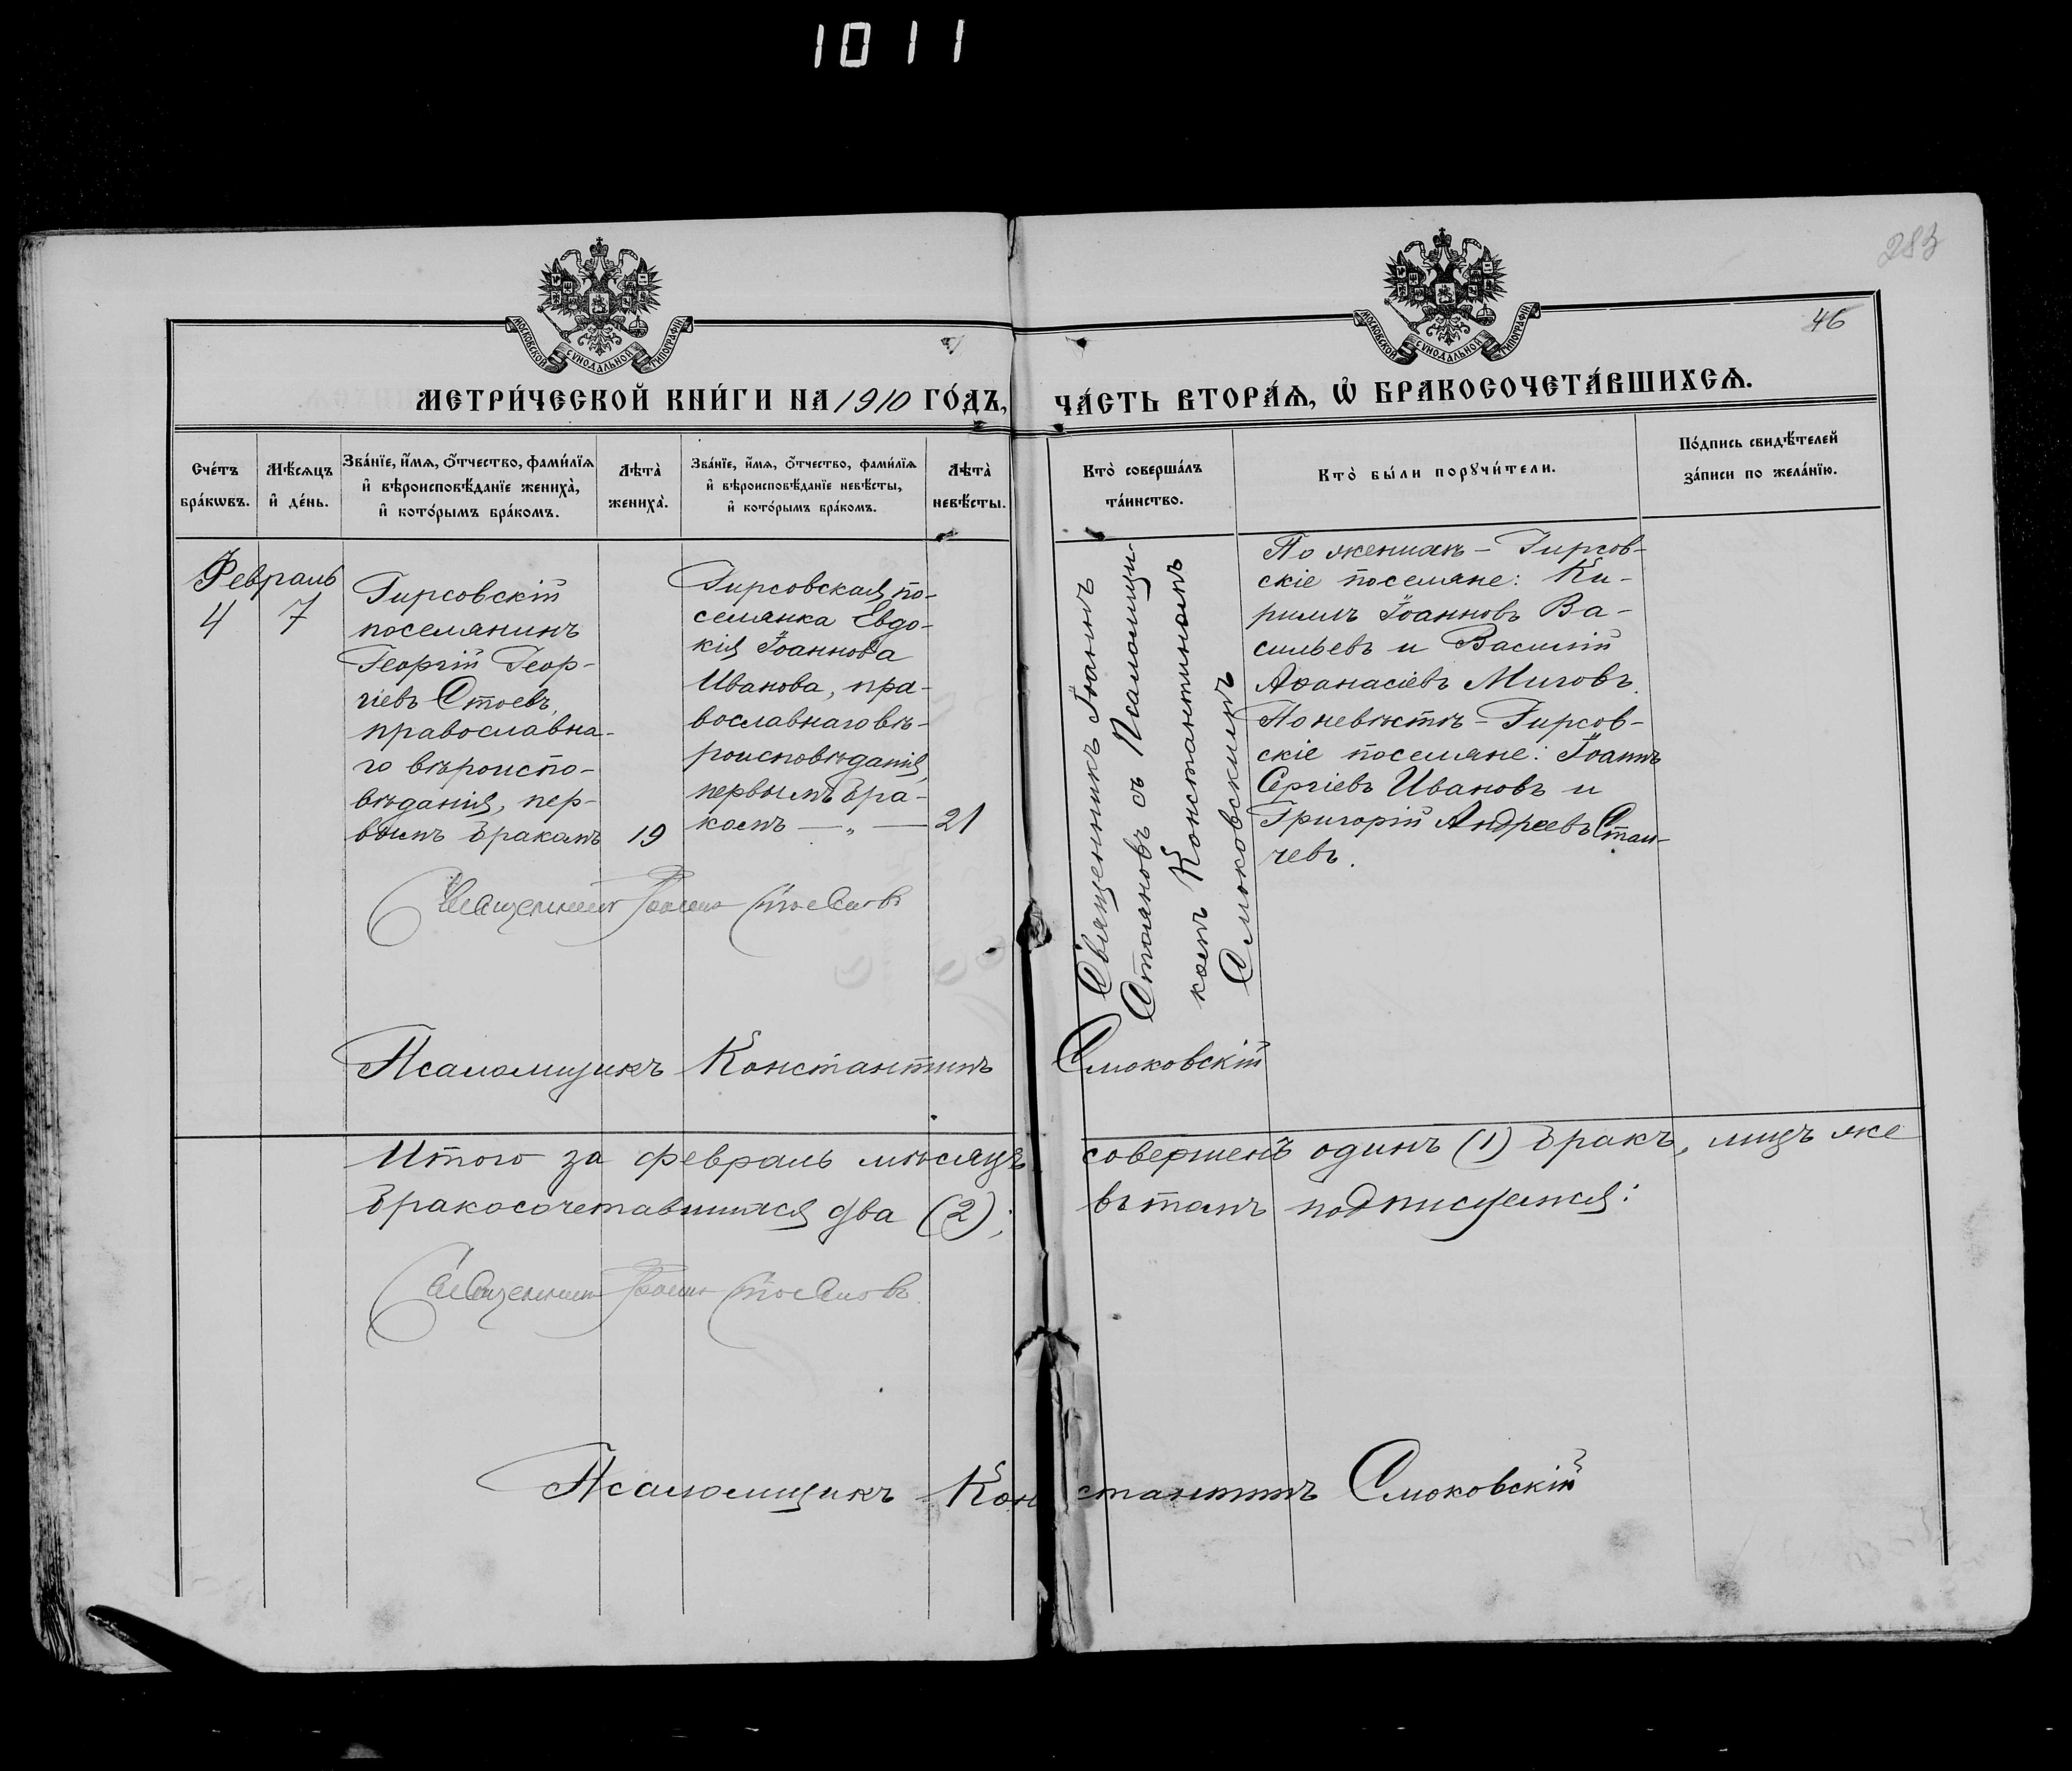 1011
283
46
МОСКОВСКОЙ СУНОДАЛЬНОЙ ТИПОГРАФІИ
МОСКОВСКОЙ СУНОДАЛЬНОЙ ТИПОГРАФІИ
МЕТРИ́ЧЕСКОЙ КНИ́ГИ НА 1910 ГО́ДЪ,
ЧА́СТЬ ВТОРА́Ѧ, Ѡ҆ БРАКОСОЧЕТА́ВШИХСѦ.
Сче́тъ
бра́кѡвъ.
Мѣ́сѧцъ
и҆ де́нь.
Зва́нїе, и҆́мѧ, ѻ҆́тчество, фами́лїѧ
и҆ вѣроисповѣ́данїе жениха̀,
и҆ кото́рымъ бра́комъ.
Лѣта̀
жениха̀.
Зва́нїе, и҆́мѧ, ѻ҆́тчество, фами́лїѧ
и҆ вѣроисповѣ́данїе невѣ́сты,
и҆ кото́рымъ бра́комъ.
Лѣта̀
невѣ́сты.
Кто̀ соверша́лъ
та́инство.
Кто̀ бы́ли порꙋчи́тели.
По́дпись свидѣ́телей
за́писи по жела́нїю.
Февраль
4
7
Гирсовскій
поселянинъ
Георгій Геор-
гіевъ Стоевъ,
православна-
го вѣроиспо-
вѣданія, пер-
вымъ бракомъ
19
Гирсовская по-
селянка Евдо-
кія Іоаннова
Иванова, пра-
вославнаго вѣ-
роисповѣданія,
первымъ бра-
комъ — „ —
21
Священникъ Іоаннъ
Стояновъ съ Псаломщи-
комъ Константиномъ
Смоковскимъ
По женихѣ - Гирсов-
скіе поселяне: Ки-
риллъ Іоанновъ Ва-
сильевъ и Василій
Аѳанасіевъ Миговъ.
По невѣстѣ - Гирсов-
скіе поселяне: Іоаннъ
Сергіевъ Ивановъ и
Григорій Андреевъ Стан-
чевъ.
Священникъ Іоаннъ Стояновъ
Псаломщикъ Константинъ Смоковскій
Итого за февраль мѣсяцъ совершенъ одинъ (1) бракъ, лицъ же
бракосочетавшихся два (2); въ томъ подписуемся:
Священникъ Іоаннъ Стояновъ
Псаломщикъ Константинъ Смоковскій